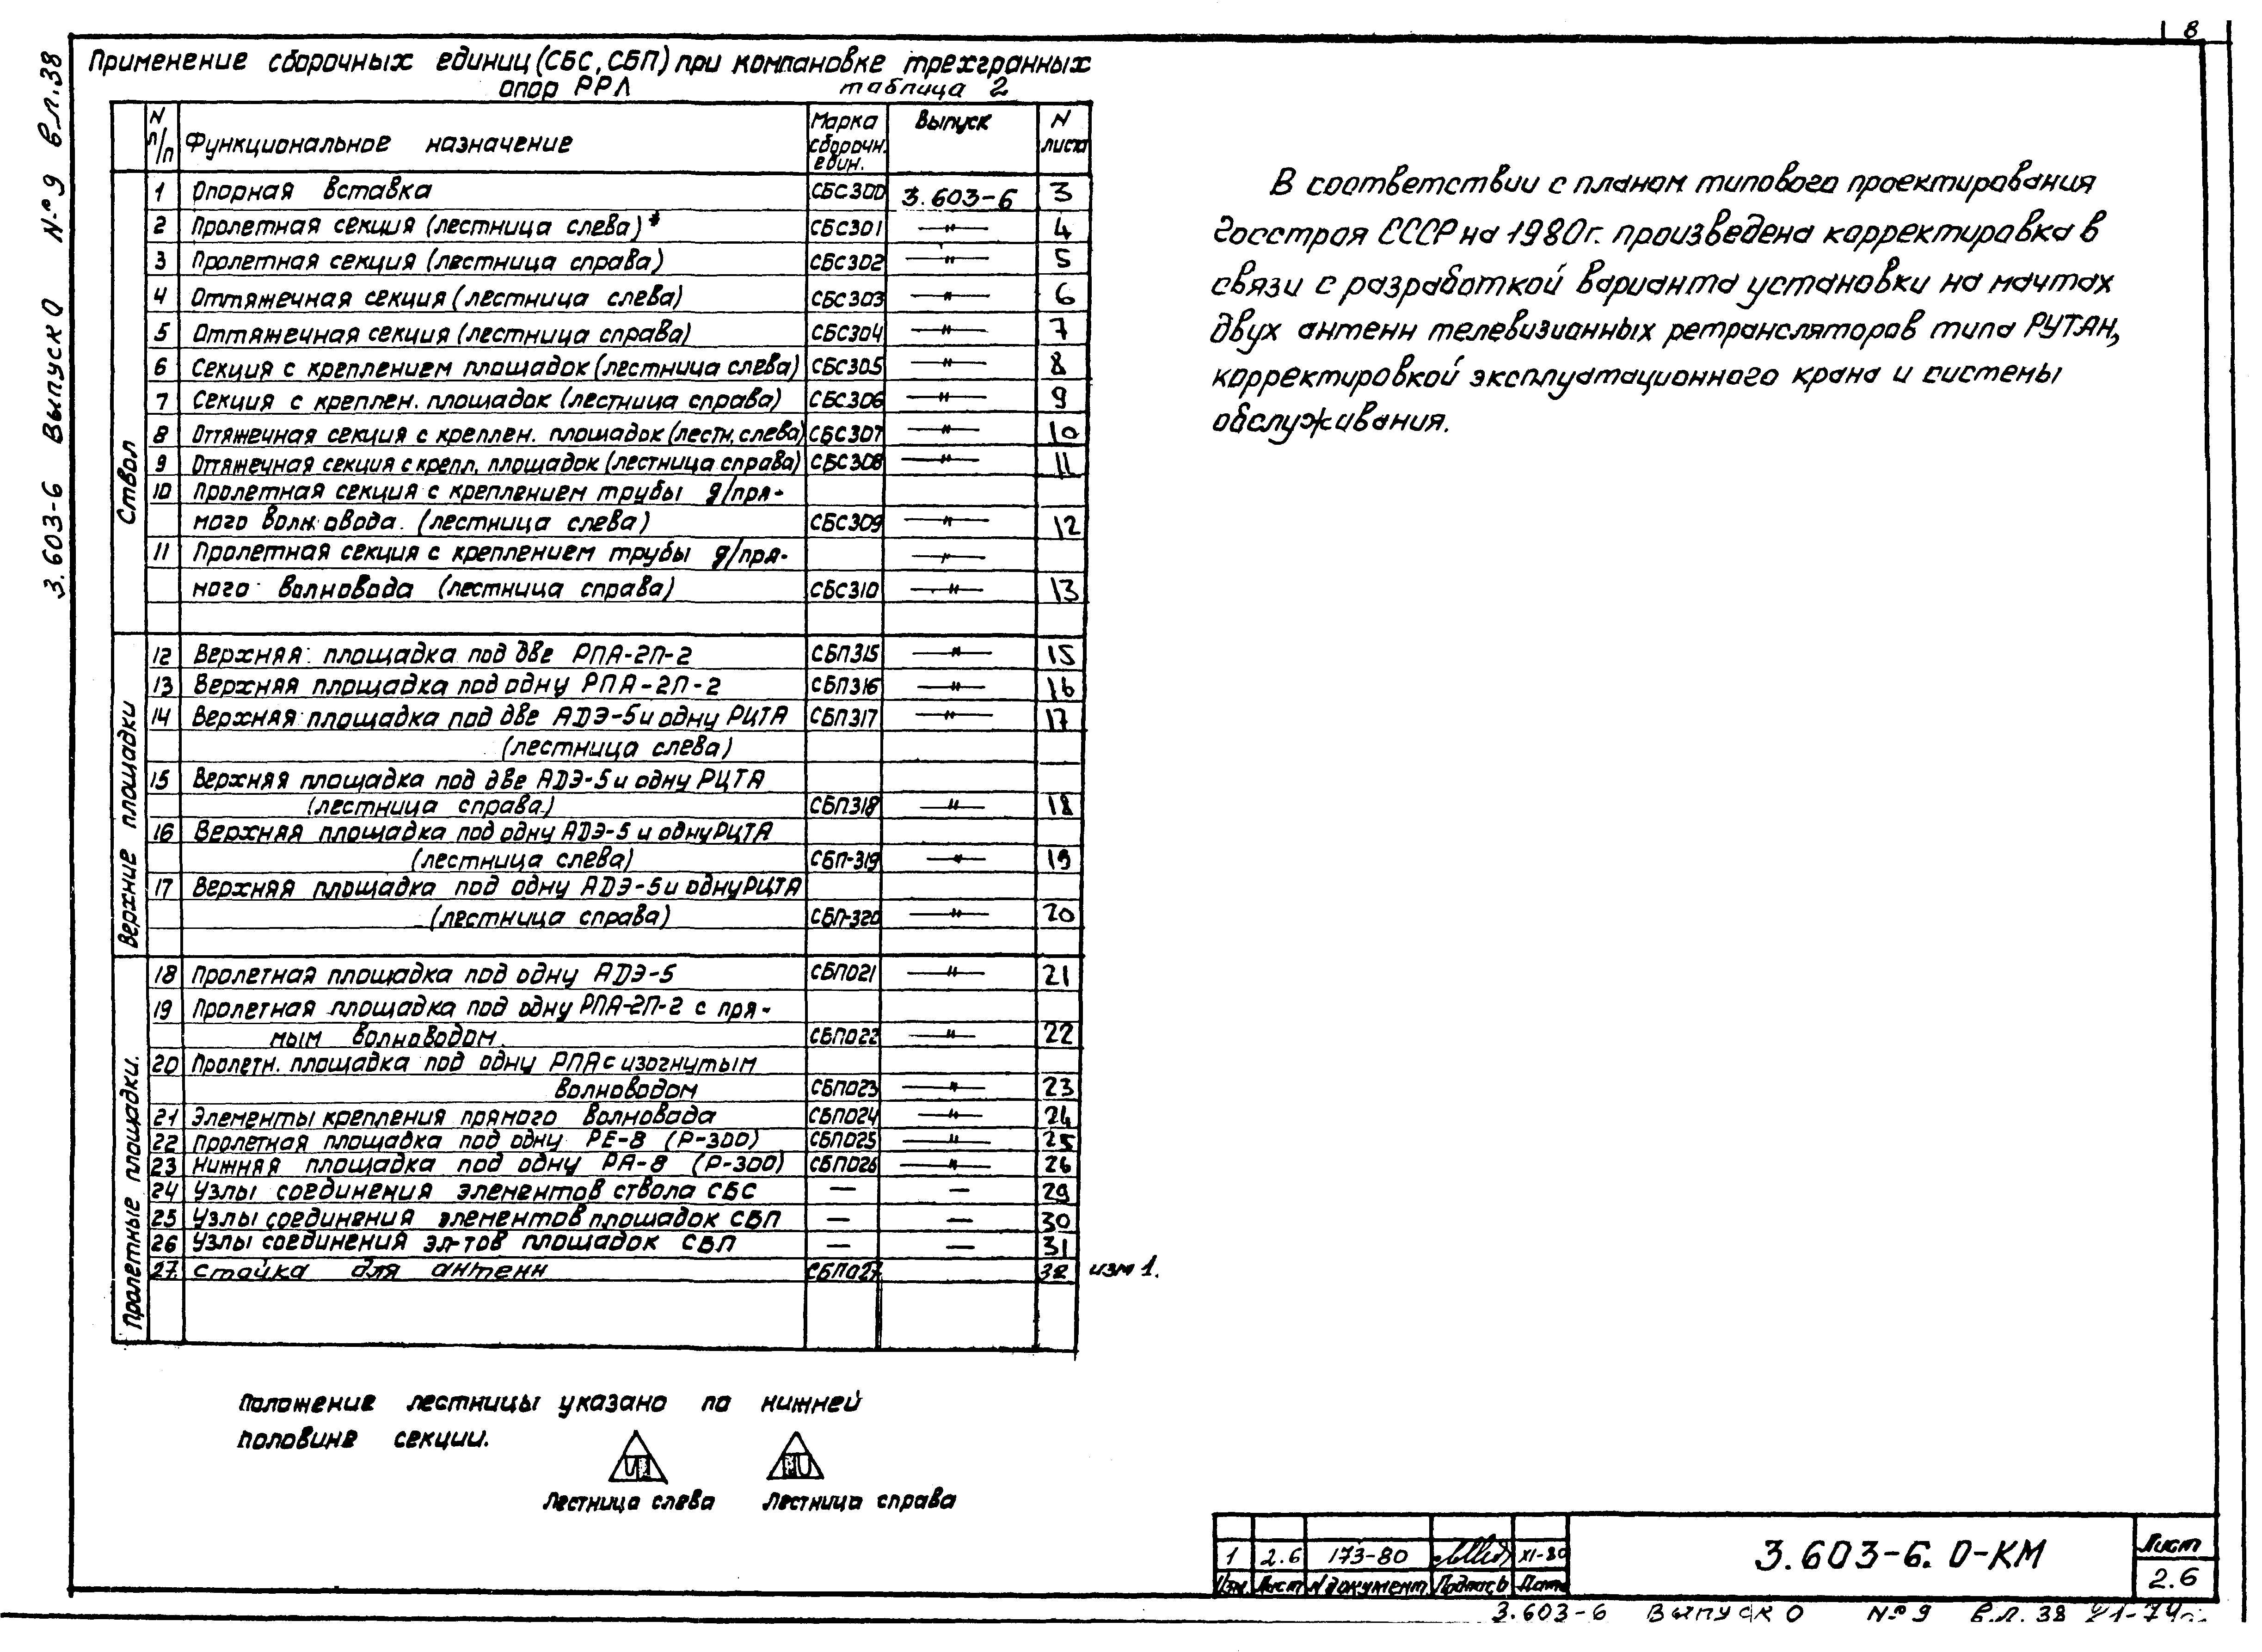 8
3.603-6 Выпуск 0 №9 в.л.38
Применение сборочных единиц (СБС, СБП) при компановке трехгранных
опор РРЛ таблица 2
N п/п Функциональное назначение Марка сборочн. един. Выпуск N листа
Ствол
1 Опорная вставка СБС300 3.603-6 3
2 Пролетная секция (лестница слева)* СБС301 —"— 4
3 Пролетная секция (лестница справа) СБС302 —"— 5
4 Оттяжечная секция (лестница слева) СБС303 —"— 6
5 Оттяжечная секция (лестница справа) СБС304 —"— 7
6 Секция с креплением площадок (лестница слева) СБС305 —"— 8
7 Секция с креплен. площадок (лестница справа) СБС306 —"— 9
8 Оттяжечная секция с креплен. площадок (лестн. слева) СБС307 —"— 10
9 Оттяжечная секция с крепл. площадок (лестница справа) СБС308 —"— 11
10 Пролетная секция с креплением трубы д/пря-
мого волновода. (лестница слева) СБС309 —"— 12
11 Пролетная секция с креплением трубы д/пря- —"—
мого волновода (лестница справа) СБС310 —"— 13
Верхние площадки
12 Верхняя площадка под две РПА-2П-2 СБП315 —"— 15
13 Верхняя площадка под одну РПА-2П-2 СБП316 —"— 16
14 Верхняя площадка под две АДЭ-5 и одну РЦТА СБП317 —"— 17
(лестница слева)
15 Верхняя площадка под две АДЭ-5 и одну РЦТА
(лестница справа) СБП318 —"— 18
16 Верхняя площадка под одну АДЭ-5 и одну РЦТА
(лестница слева) СБП-319 —"— 19
17 Верхняя площадка под одну АДЭ-5 и одну РЦТА
(лестница справа) СБП-320 —"— 20
Пролетные площадки.
18 Пролетная площадка под одну АДЭ-5 СБП021 —"— 21
19 Пролетная площадка под одну РПА-2П-2 с пря-
мым волноводом. СБП022 —"— 22
20 Пролетн. площадка под одну РПА с изогнутым
волноводом СБП023 —"— 23
21 Элементы крепления прямого волновода СБП024 —"— 24
22 Пролетная площадка под одну РЕ-8 (Р-300) СБП025 —"— 25
23 Нижняя площадка под одну РА-8 (Р-300) СБП026 —"— 26
24 Узлы соединения элементов ствола СБС — — 29
25 Узлы соединения элементов площадок СБП — — 30
26 Узлы соединения эл-тов площадок СБП — — 31
27. стойка для антенн СБП027 32 изм 1.
Положение лестницы указано по нижней
половине секции.
Лестница слева Лестница справа
В соответствии с планом типового проектирования
Госстроя СССР на 1980г. произведена корректировка в
связи с разработкой варианта установки на мачтах
двух антенн телевизионных ретрансляторов типа РУТАН,
корректировкой эксплуатационного крана и системы
обслуживания.
1 2.6 173-80 XI-80
Изм. Лист N документ Подпись Дата
3.603-6.0-КМ
Лист
2.6
3.603-6 Выпуск 0 №9 в.л. 38